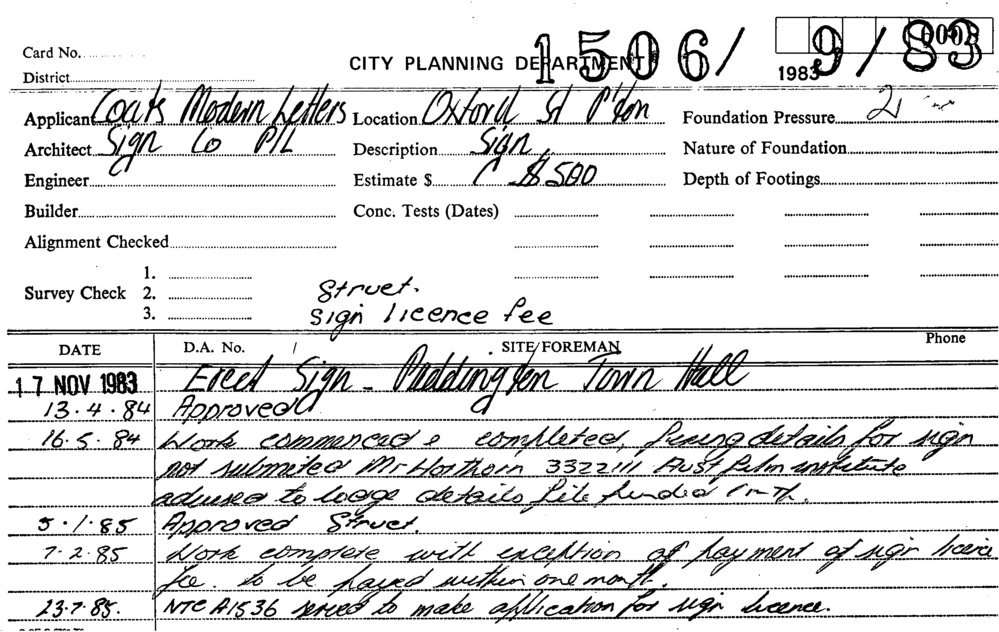 Card No.
CITY PLANNING DEPARTMENT 1506/ 1983 9/83
District
Applicant Coats Modern Letters Location Oxford St P'ton Foundation Pressure 2
Architect Sign Co P/L Description Sign Nature of Foundation
Engineer Estimate $ $500 Depth of Footings
Builder Conc. Tests (Dates)
Alignment Checked
1.
Survey Check 2. Struct.
3. Sign licence fee
DATE D.A. No. SITE/FOREMAN Phone
17 NOV 1983 Erect Sign - Paddington Town Hall
13.4.84 Approved
16.5.84 Work commenced & completed, fixing details for sign
not submited Mr Horthorn 3322111 Aust film institute
advised to lodge details file funded 1 mth.
5.1.85 Approved Struct.
7.2.85 Work complete with exception of payment of sign licence
fee. to be payed within one month.
23.7.85. NTC A1536 served to make application for sign licence.